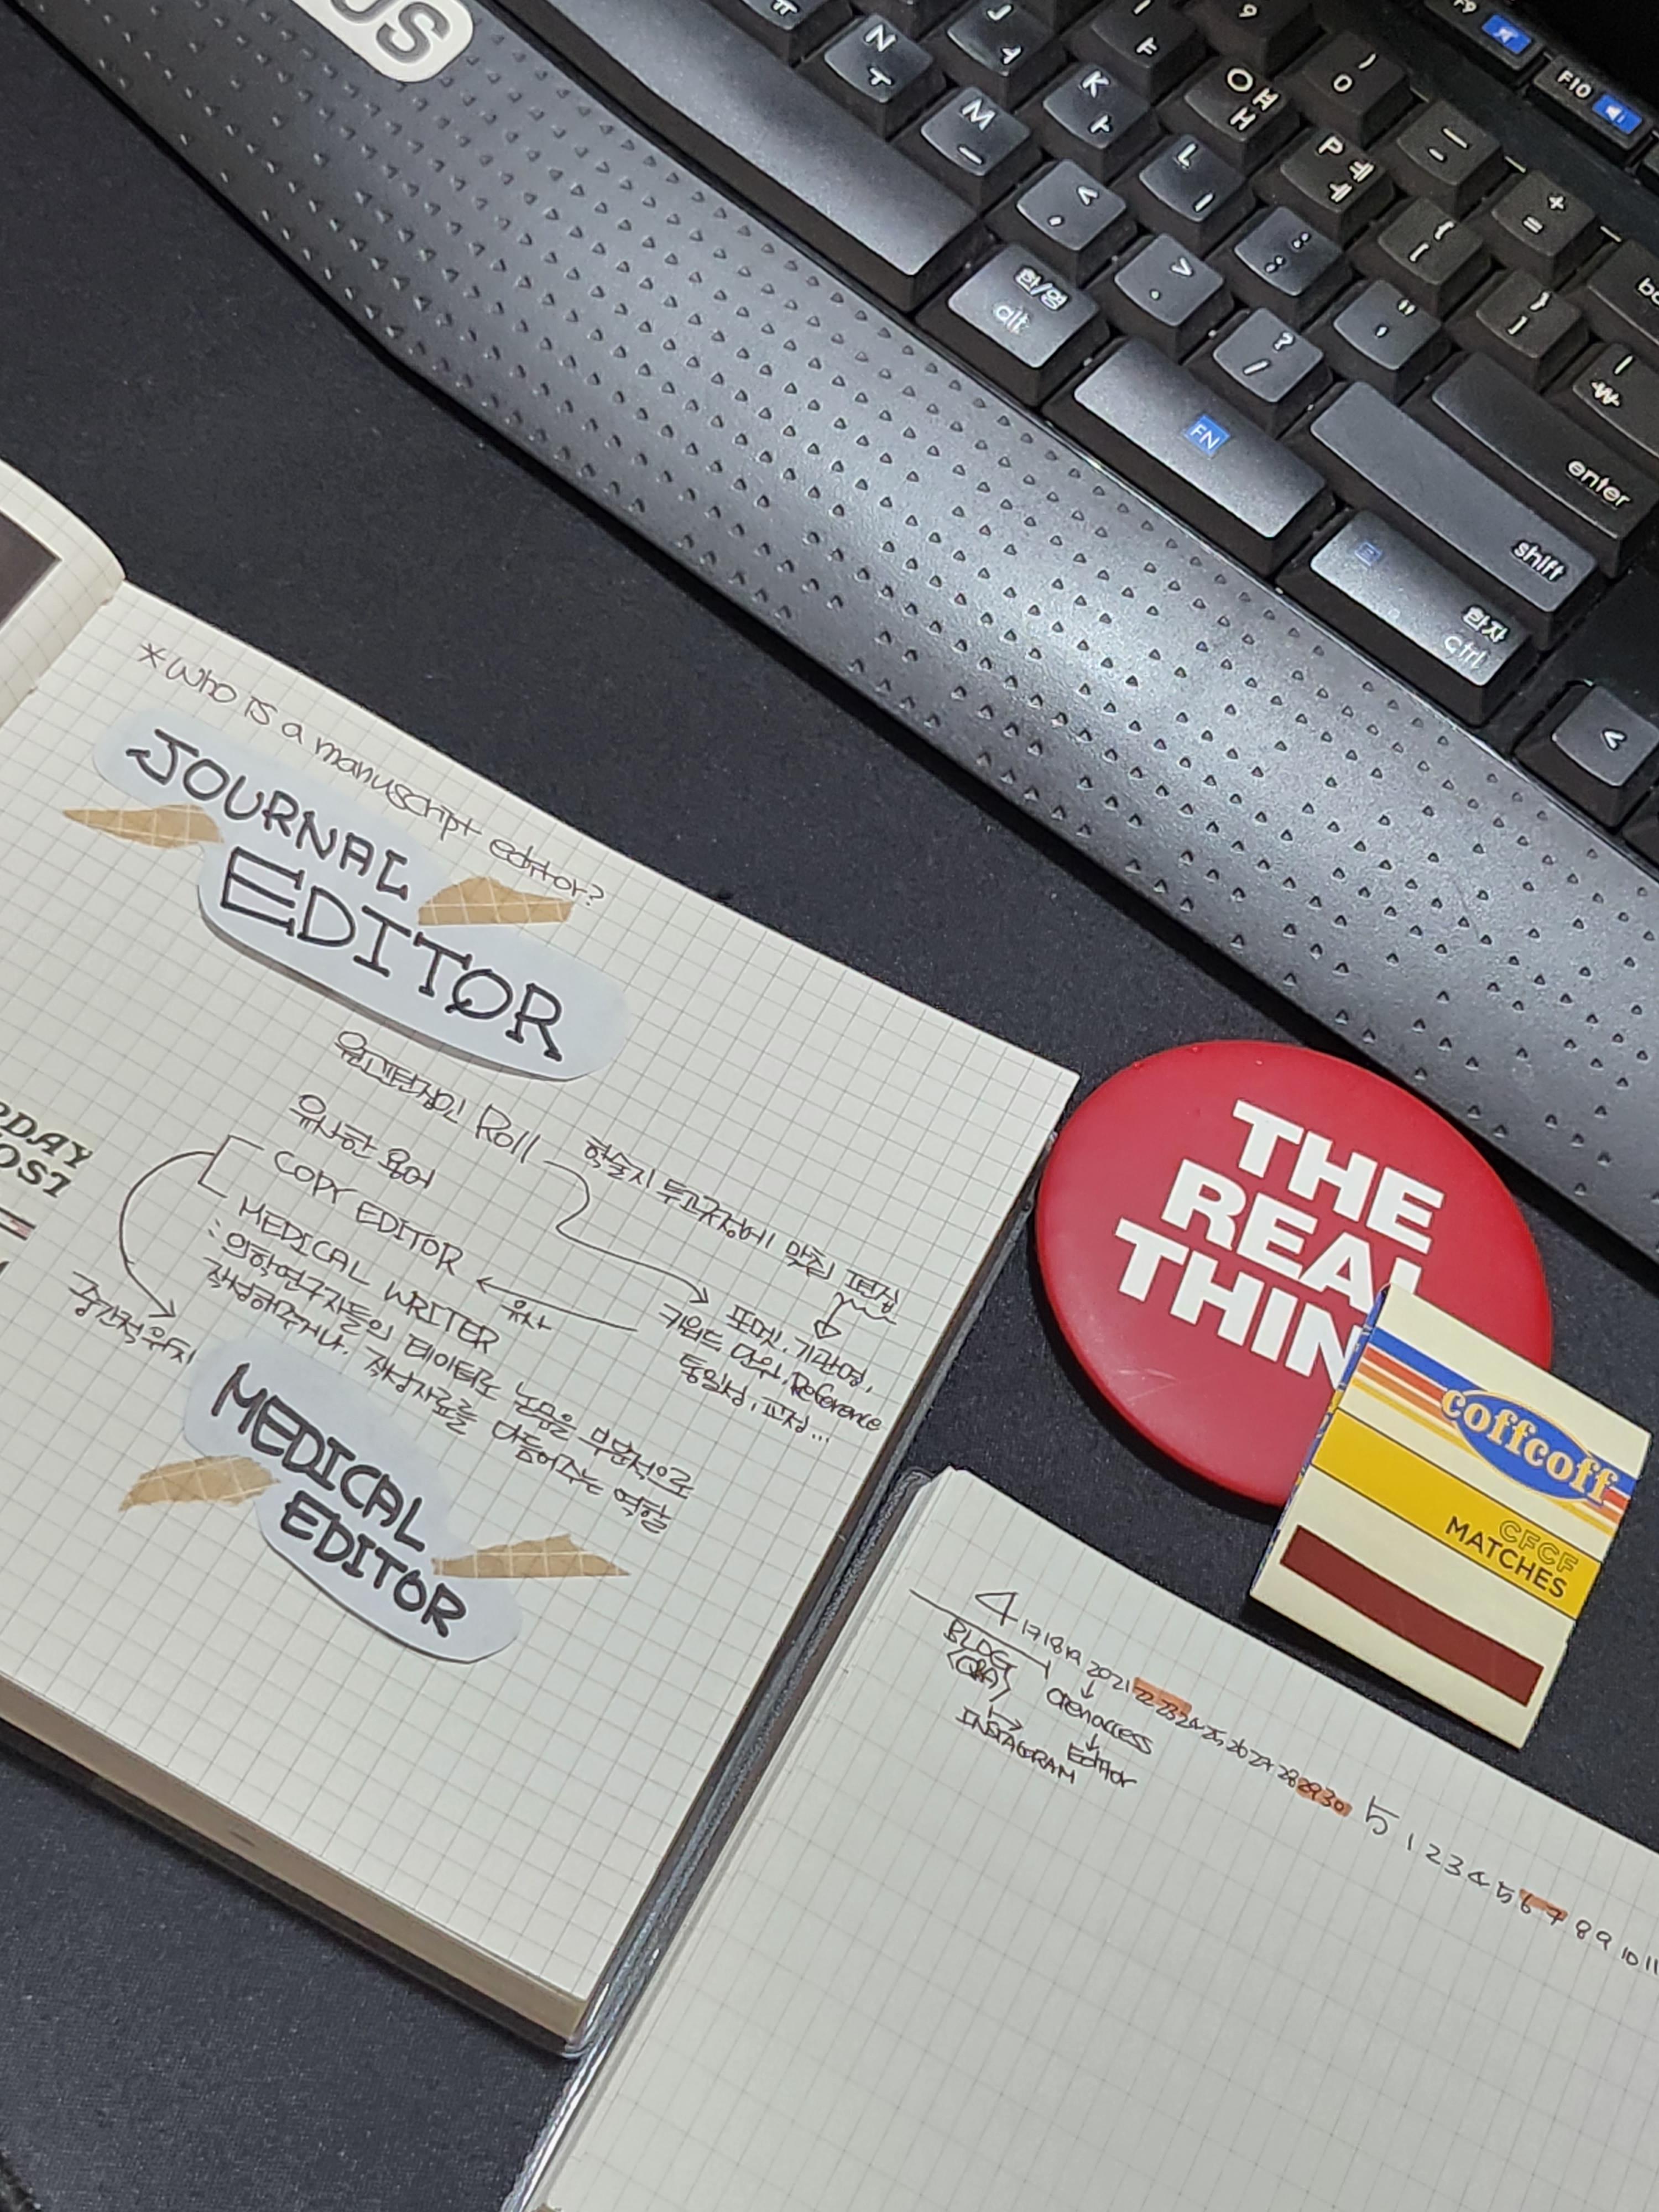 US
N ㅜ
J ㅓ
I ㅑ
9
F9
M ㅡ
K ㅏ
O ㅒ ㅐ
) 0
F10
< ,
L ㅣ
P ㅖ ㅔ
_ -
한/영 alt
> .
: ;
{ [
+ =
FN
? /
" '
} ]
| ₩
enter
shift
한자 ctrl
<
*Who is a manuscript editor?
JOURNAL
EDITOR
원고편집인 Roll
학술지 투고규정에 맞춤 편집
유사한 용어
COPY EDITOR
유사
MEDICAL WRITER
포멧, 기관명,
키워드 단위, Reference
통일성, 교정...
: 의학연구자들의 데이터로 논문을 부분적으로
작성해주거나, 작성자료를 다듬어주는 역할
중간적 위치
MEDICAL
EDITOR
RDAY
OST
THE
REAL
THIN
coffcoff
CFCF
MATCHES
4 17 18 19 20 21 22 23 24 25 26 27 28 29 30 5 1 2 3 4 5 6 7 8 9 10 11
BLOG
(Q&A)
INSTAGRAM
Openaccess
Editor